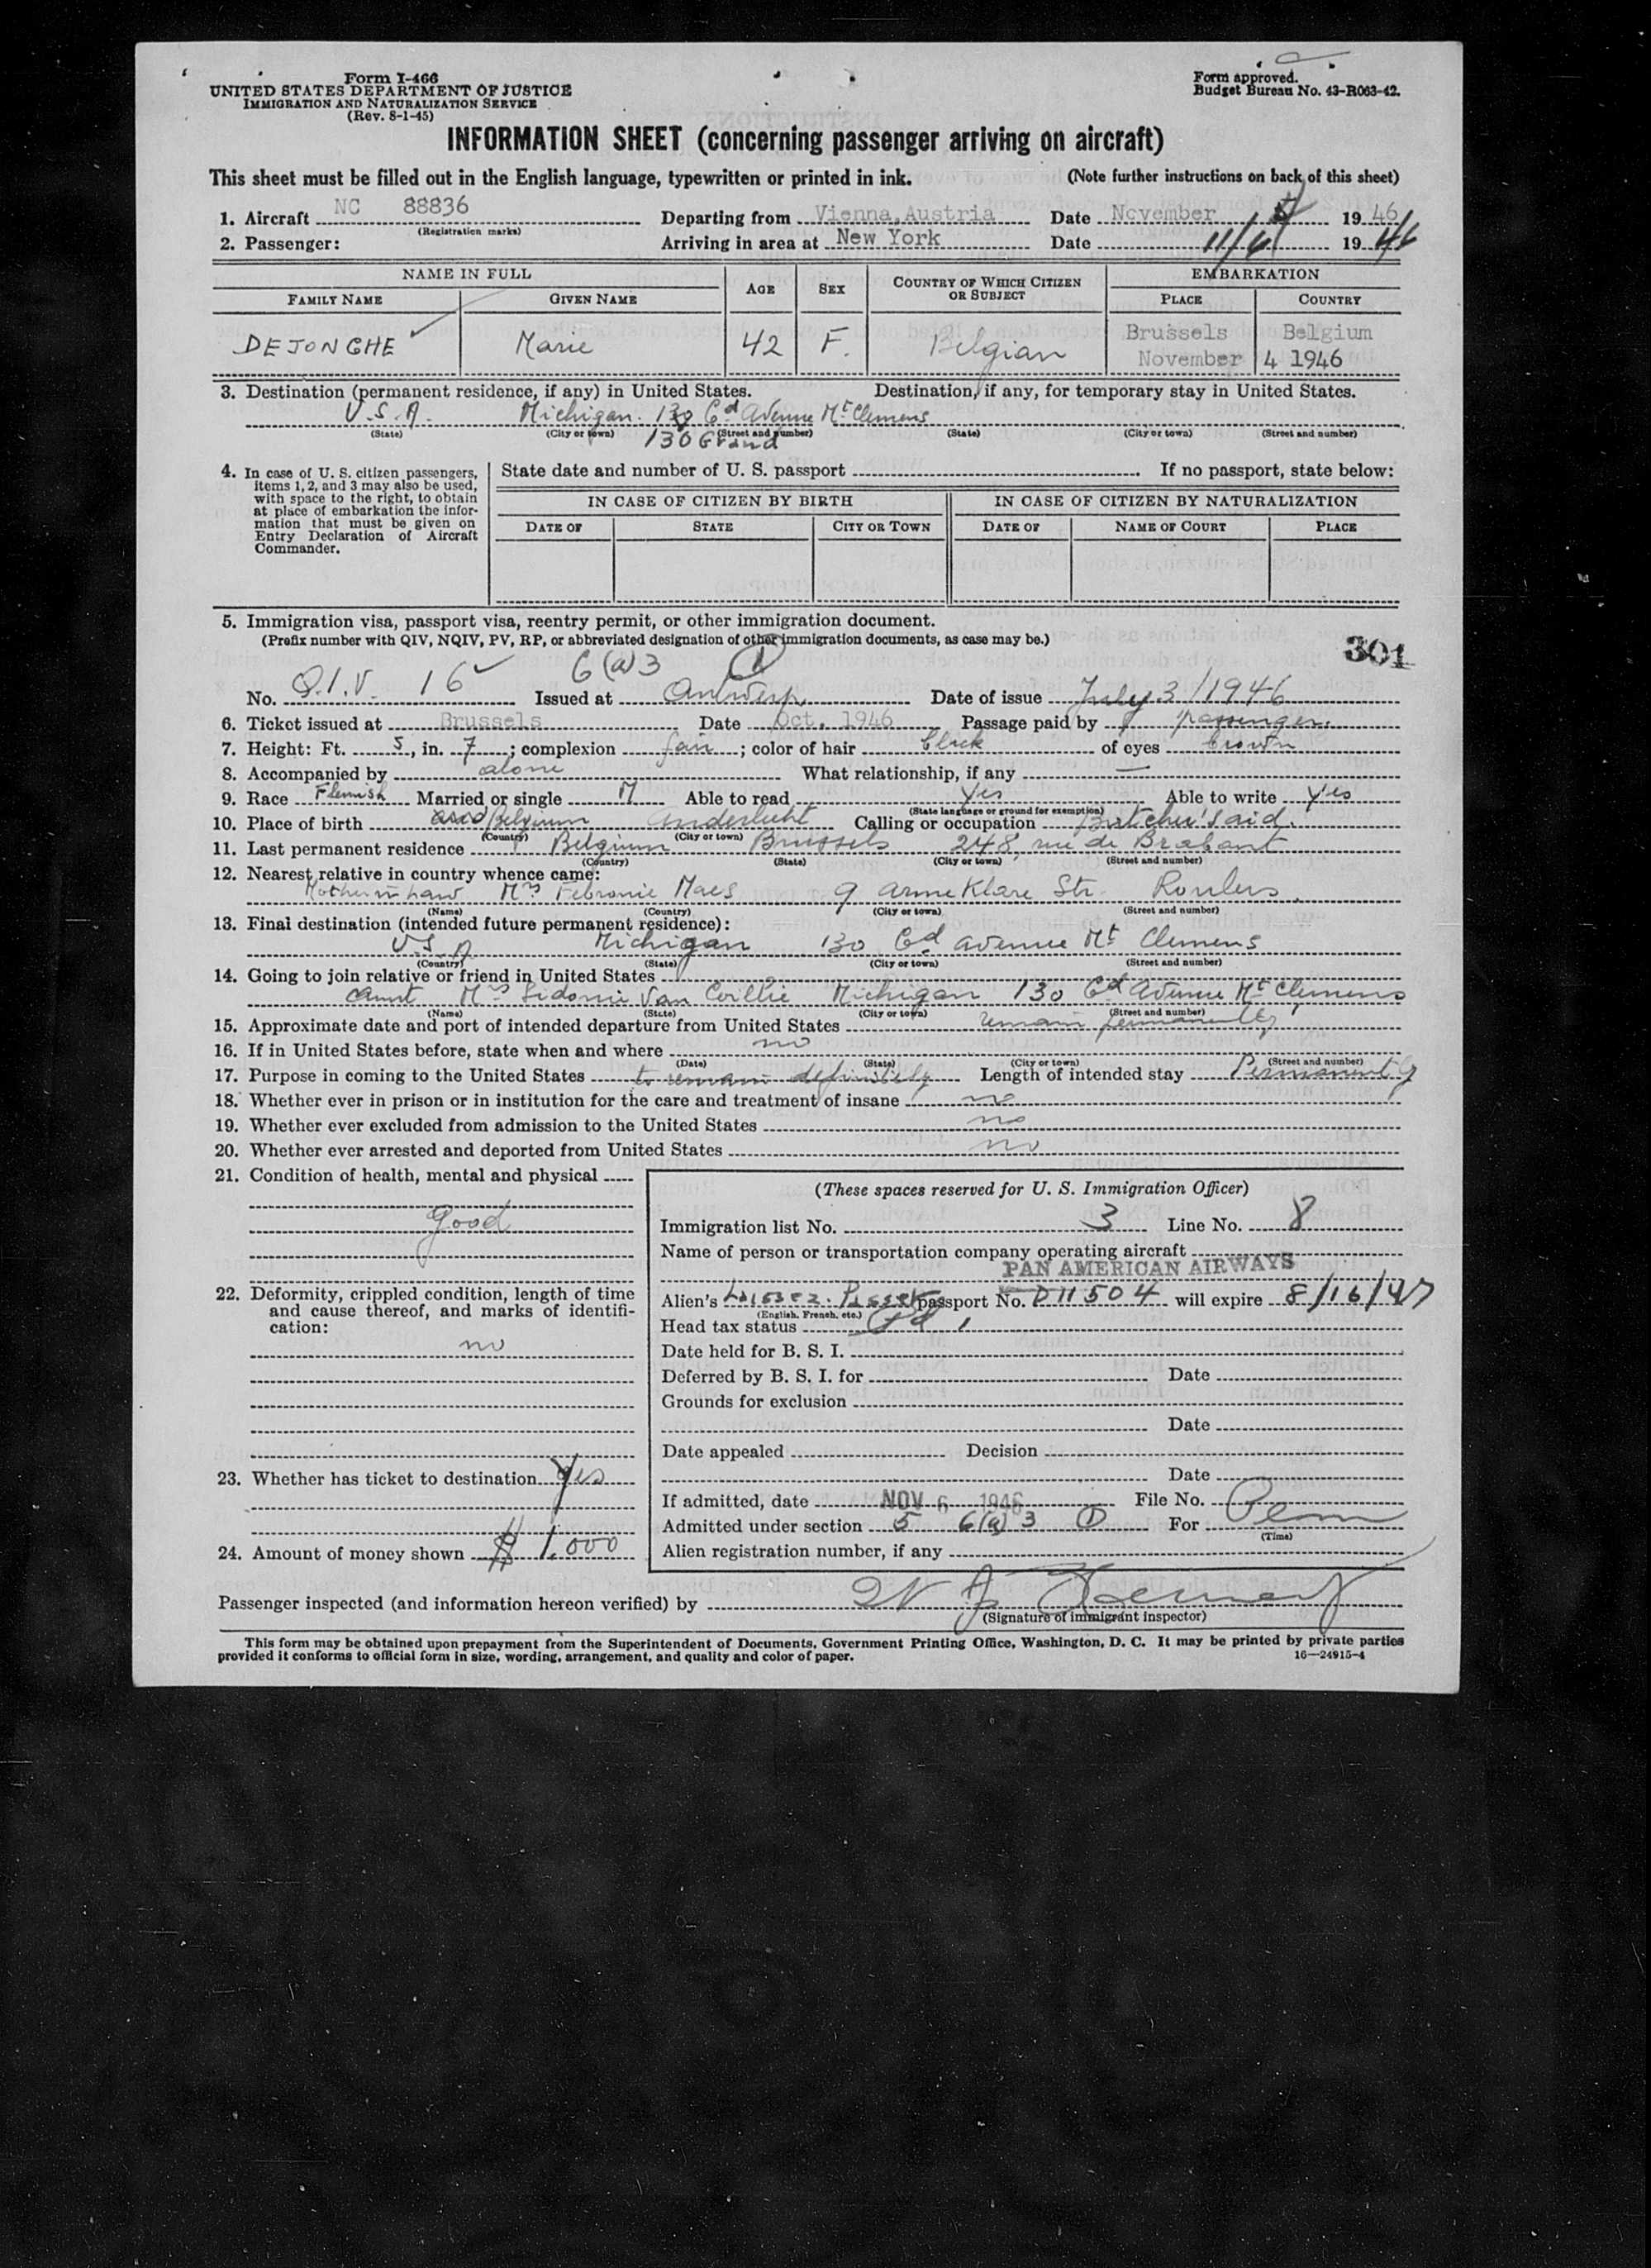 Form I-466
UNITED STATES DEPARTMENT OF JUSTICE
IMMIGRATION AND NATURALIZATION SERVICE
(Rev. 8-1-45)
Form approved.
Budget Bureau No. 43-R063-42.
INFORMATION SHEET (concerning passenger arriving on aircraft)
This sheet must be filled out in the English language, typewritten or printed in ink. (Note further instructions on back of this sheet)
1. Aircraft NC 88836 Departing from Vienna, Austria Date November 5 1946
(Registration marks)
2. Passenger: Arriving in area at New York Date 11/6 1946
NAME IN FULL AGE SEX COUNTRY OF WHICH CITIZEN OR SUBJECT EMBARKATION
FAMILY NAME GIVEN NAME PLACE COUNTRY
DEJONGHE Marie 42 F. Belgian Brussels Belgium
November 4 1946
3. Destination (permanent residence, if any) in United States. Destination, if any, for temporary stay in United States.
U.S.A. Michigan. 130 Gd Avenue Mt Clemens
(State) (City or town) (Street and number) (State) (City or town) (Street and number)
130 Grand
4. In case of U. S. citizen passengers, items 1, 2, and 3 may also be used, with space to the right, to obtain at place of embarkation the information that must be given on Entry Declaration of Aircraft Commander.
State date and number of U. S. passport If no passport, state below:
IN CASE OF CITIZEN BY BIRTH IN CASE OF CITIZEN BY NATURALIZATION
DATE OF STATE CITY OR TOWN DATE OF NAME OF COURT PLACE
5. Immigration visa, passport visa, reentry permit, or other immigration document.
(Prefix number with QIV, NQIV, PV, RP, or abbreviated designation of other immigration documents, as case may be.)
301
6(a)3 1
No. Q.I.V. 16 Issued at Antwerp, Date of issue July 3/1946
6. Ticket issued at Brussels Date Oct. 1946 Passage paid by passenger.
7. Height: Ft. 5, in. 7; complexion fair; color of hair black of eyes brown
8. Accompanied by alone What relationship, if any —
9. Race Flemish Married or single M Able to read Yes Able to write yes
(State language or ground for exemption)
10. Place of birth Belgium Anderlecht Calling or occupation Butcher's aid.
(Country) (City or town)
11. Last permanent residence Belgium Brussels 248, rue de Brabant
(Country) (State) (City or town) (Street and number)
12. Nearest relative in country whence came:
Mother in Law Mrs Febronie Maes 9 Arme Klare Str. Roulers
(Name) (Country) (City or town) (Street and number)
13. Final destination (intended future permanent residence):
U.S.A Michigan 130 Gd avenue Mt Clemens
(Country) (State) (City or town) (Street and number)
14. Going to join relative or friend in United States
Aunt Mrs Sidonie Van Coillie Michigan 130 Gd Avenue Mt Clemens
(Name) (State) (City or town) (Street and number)
15. Approximate date and port of intended departure from United States remain permanently
16. If in United States before, state when and where no
(Date) (State) (City or town) (Street and number)
17. Purpose in coming to the United States to remain definitely Length of intended stay Permanently
18. Whether ever in prison or in institution for the care and treatment of insane no
19. Whether ever excluded from admission to the United States no
20. Whether ever arrested and deported from United States no
21. Condition of health, mental and physical
Good
22. Deformity, crippled condition, length of time and cause thereof, and marks of identification:
no
23. Whether has ticket to destination yes
24. Amount of money shown $ 1,000
(These spaces reserved for U. S. Immigration Officer)
Immigration list No. 3 Line No. 8
Name of person or transportation company operating aircraft
PAN AMERICAN AIRWAYS
Alien's passport No. D11504 will expire 8/16/47
(English, French, etc.)
Head tax status Pd
Date held for B. S. I.
Deferred by B. S. I. for Date
Grounds for exclusion
Date
Date appealed Decision
Date
If admitted, date NOV 6 1946 File No.
Admitted under section 5 6(a) 3 1 For Perm
(Time)
Alien registration number, if any
Passenger inspected (and information hereon verified) by
(Signature of immigrant inspector)
This form may be obtained upon prepayment from the Superintendent of Documents, Government Printing Office, Washington, D. C. It may be printed by private parties
provided it conforms to official form in size, wording, arrangement, and quality and color of paper. 16—24915-4